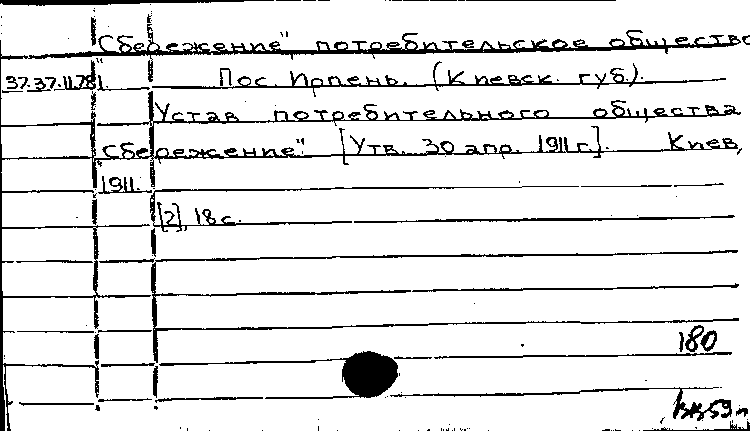 "Сбережение", потребительское общество
37.37.11.781. Пос. Ирпень. (Киевск. губ.).
Устав потребительного общества
"Сбережение". [Утв. 30 апр. 1911 г.]. Киев,
1911.
[2], 18 с.
180